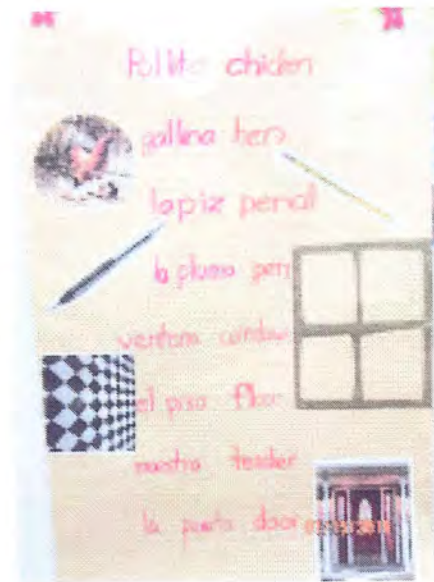 Pollito chicken
gallina hen
lapiz pencil
la pluma pen
ventana window
el piso floor
maestra teacher
la puerta door